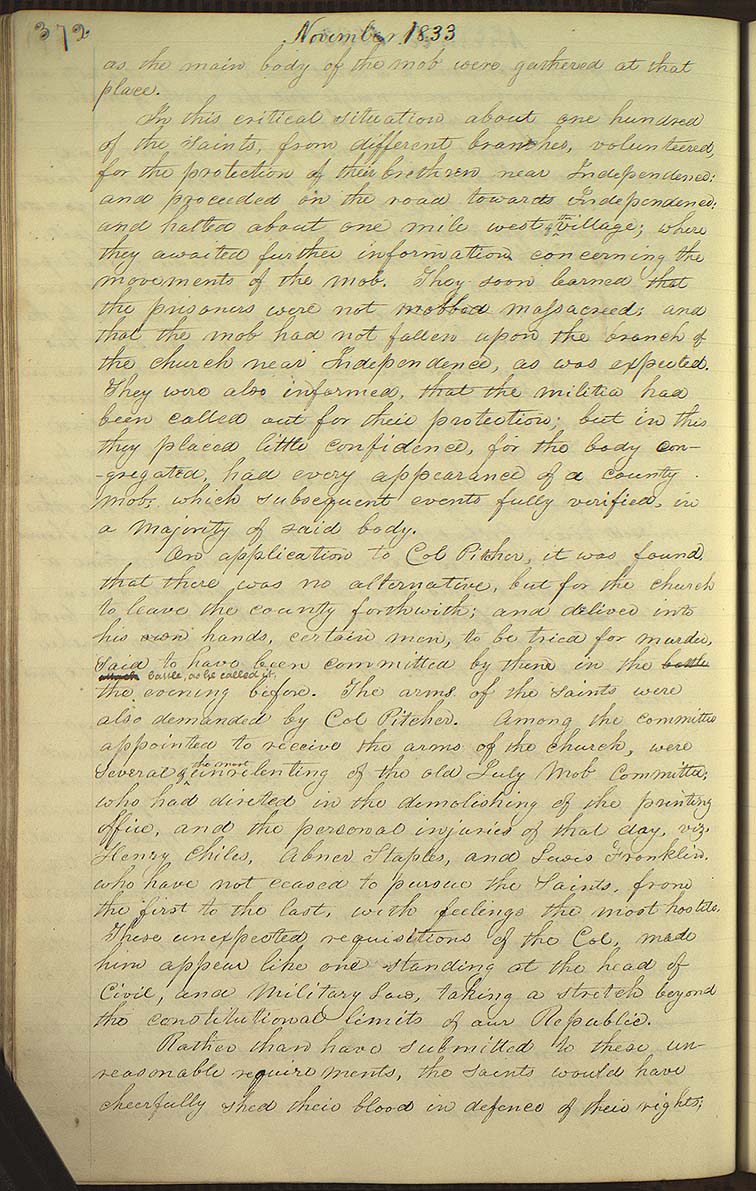 372
November 1833
as the main body of the mob were gathered at that
place.
In this critical situation about one hundred
of the Saints, from different branches, volunteered,
for the protection of their brethren near Independence;
and proceeded on the road towards Independence;
and halted about one mile west of the village; where
they awaited further information concerning the
movements of the mob. They soon learned that
the prisoners were not mobbed massacreed; and
that the mob had not fallen upon the branch of
the church near Independence, as was expected.
They were also informed, that the militia had
been called out for their protection; but in this
they placed little confidence, for the body con-
-gregated, had every appearance of a county
mob; which subsequent events fully verified, in
a majority of said body.
On application to Col Pitcher, it was found
that there was no alternative, but for the church
to leave the county forthwith; and deliver into
his own hands, certain men, to be tried for murder,
said to have been committed by them in the battle
battle, as he called it,
the evening before. The arms of the saints were
also demanded by Col Pitcher. Among the committee
appointed to receive the arms of the church, were
several of the most unrelenting of the old July mob committee;
who had directed in the demolishing of the printing
office, and the personal injuries of that day, viz.
Henry Chiles, Abner Staples, and Lewis Franklin.
who have not ceased to pursue the Saints, from
the first to the last, with feelings the most hostile.
These unexpected requisitions of the Col, made
him appear like one standing at the head of
civil, and Military Law, taking a stretch beyond
the constitutional limits of our Republic.
Rather than have submitted to these un-
reasonable requirements, the saints would have
cheerfully shed their blood in defence of their rights;